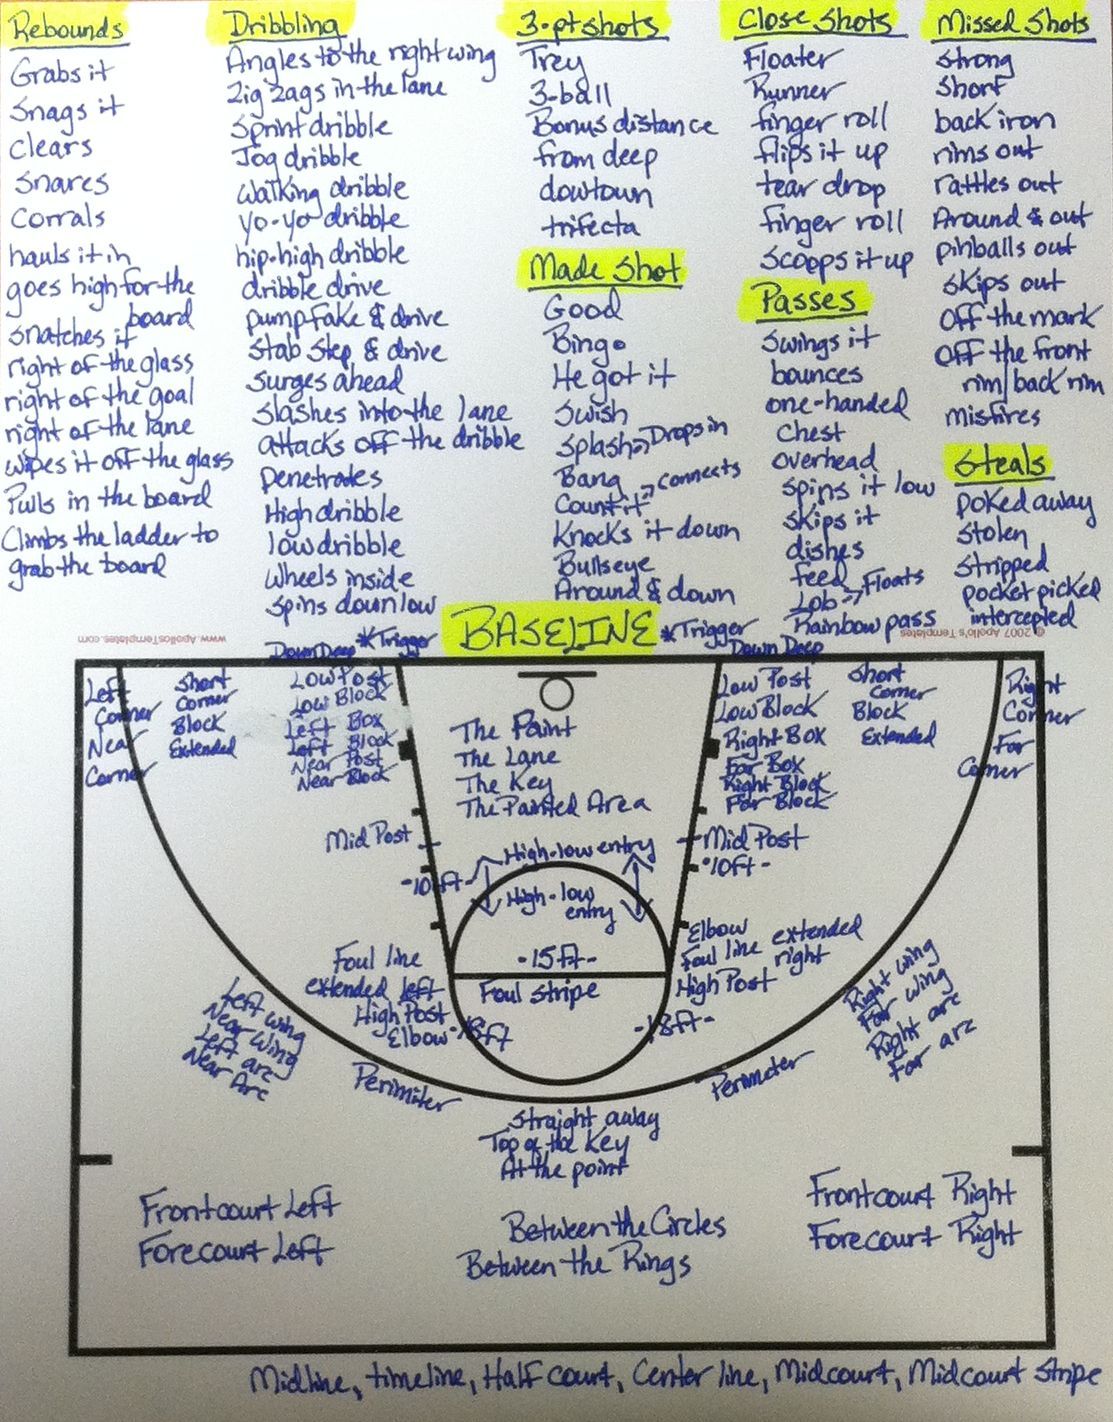 Rebounds
Grabs it
Snags it
clears
snares
corrals
hauls it in
goes high for the
board
snatches it
right of the glass
right of the goal
right of the lane
wipes it off the glass
Pulls in the board
Climbs the ladder to
grab the board
Dribbling
Angles to the right wing
Zig zags in the lane
Sprint dribble
Jog dribble
Walking dribble
yo-yo dribble
hip-high dribble
dribble drive
pump fake & drive
stab step & drive
surges ahead
slashes into the lane
attacks off the dribble
penetrades
High dribble
low dribble
Wheels inside
spins down low
3-pt shots
Trey
3-ball
Bonus distance
from deep
dowtown
trifecta
Made Shot
Good
Bingo
He got it
Swish
Splash → Drops in
Bang
Count it → connects
Knocks it down
Bullseye
Around & down
Close Shots
Floater
Runner
finger roll
flips it up
tear drop
finger roll
scoops it up
Passes
Swings it
bounces
one-handed
Chest
overhead
spins it low
skips it
dishes
feed
Lob → Floats
Rainbow pass
Missed Shots
strong
short
back iron
rims out
rattles out
Around & out
pinballs out
skips out
Off the mark
off the front
rim/back rim
misfires
Steals
poked away
stolen
stripped
pocket picked
intercepted
www.ApollosTemplates.com
© 2007 Apollo's Templates
BASELINE
Down Deep *Trigger
*Trigger
Down Deep
Left
Corner
Near
Corner
Short
Corner
Block
Extended
Low Post
Low Block
Left Box
Left Block
Near Post
Near Block
The Paint
The Lane
The Key
The Painted Area
Low Post
Low Block
Right Box
Far Box
Right Block
Far Block
Short
Corner
Block
Extended
Right
Corner
Far
Corner
Mid Post
-10ft-
High-low entry
High-low
entry
Mid Post
-10ft-
-15ft-
Foul Stripe
Foul line
extended left
High Post
Elbow
-18ft
Elbow
Foul line extended
right
High Post
-18ft-
Left wing
Near Wing
Left arc
Near Arc
Perimiter
Perimeter
Right wing
Far wing
Right arc
Far arc
Straight away
Top of the Key
At the point
Frontcourt Left
Forecourt Left
Between the Circles
Between the Rings
Frontcourt Right
Forecourt Right
Midline, timeline, Half court, Center line, Midcourt, Midcourt Stripe